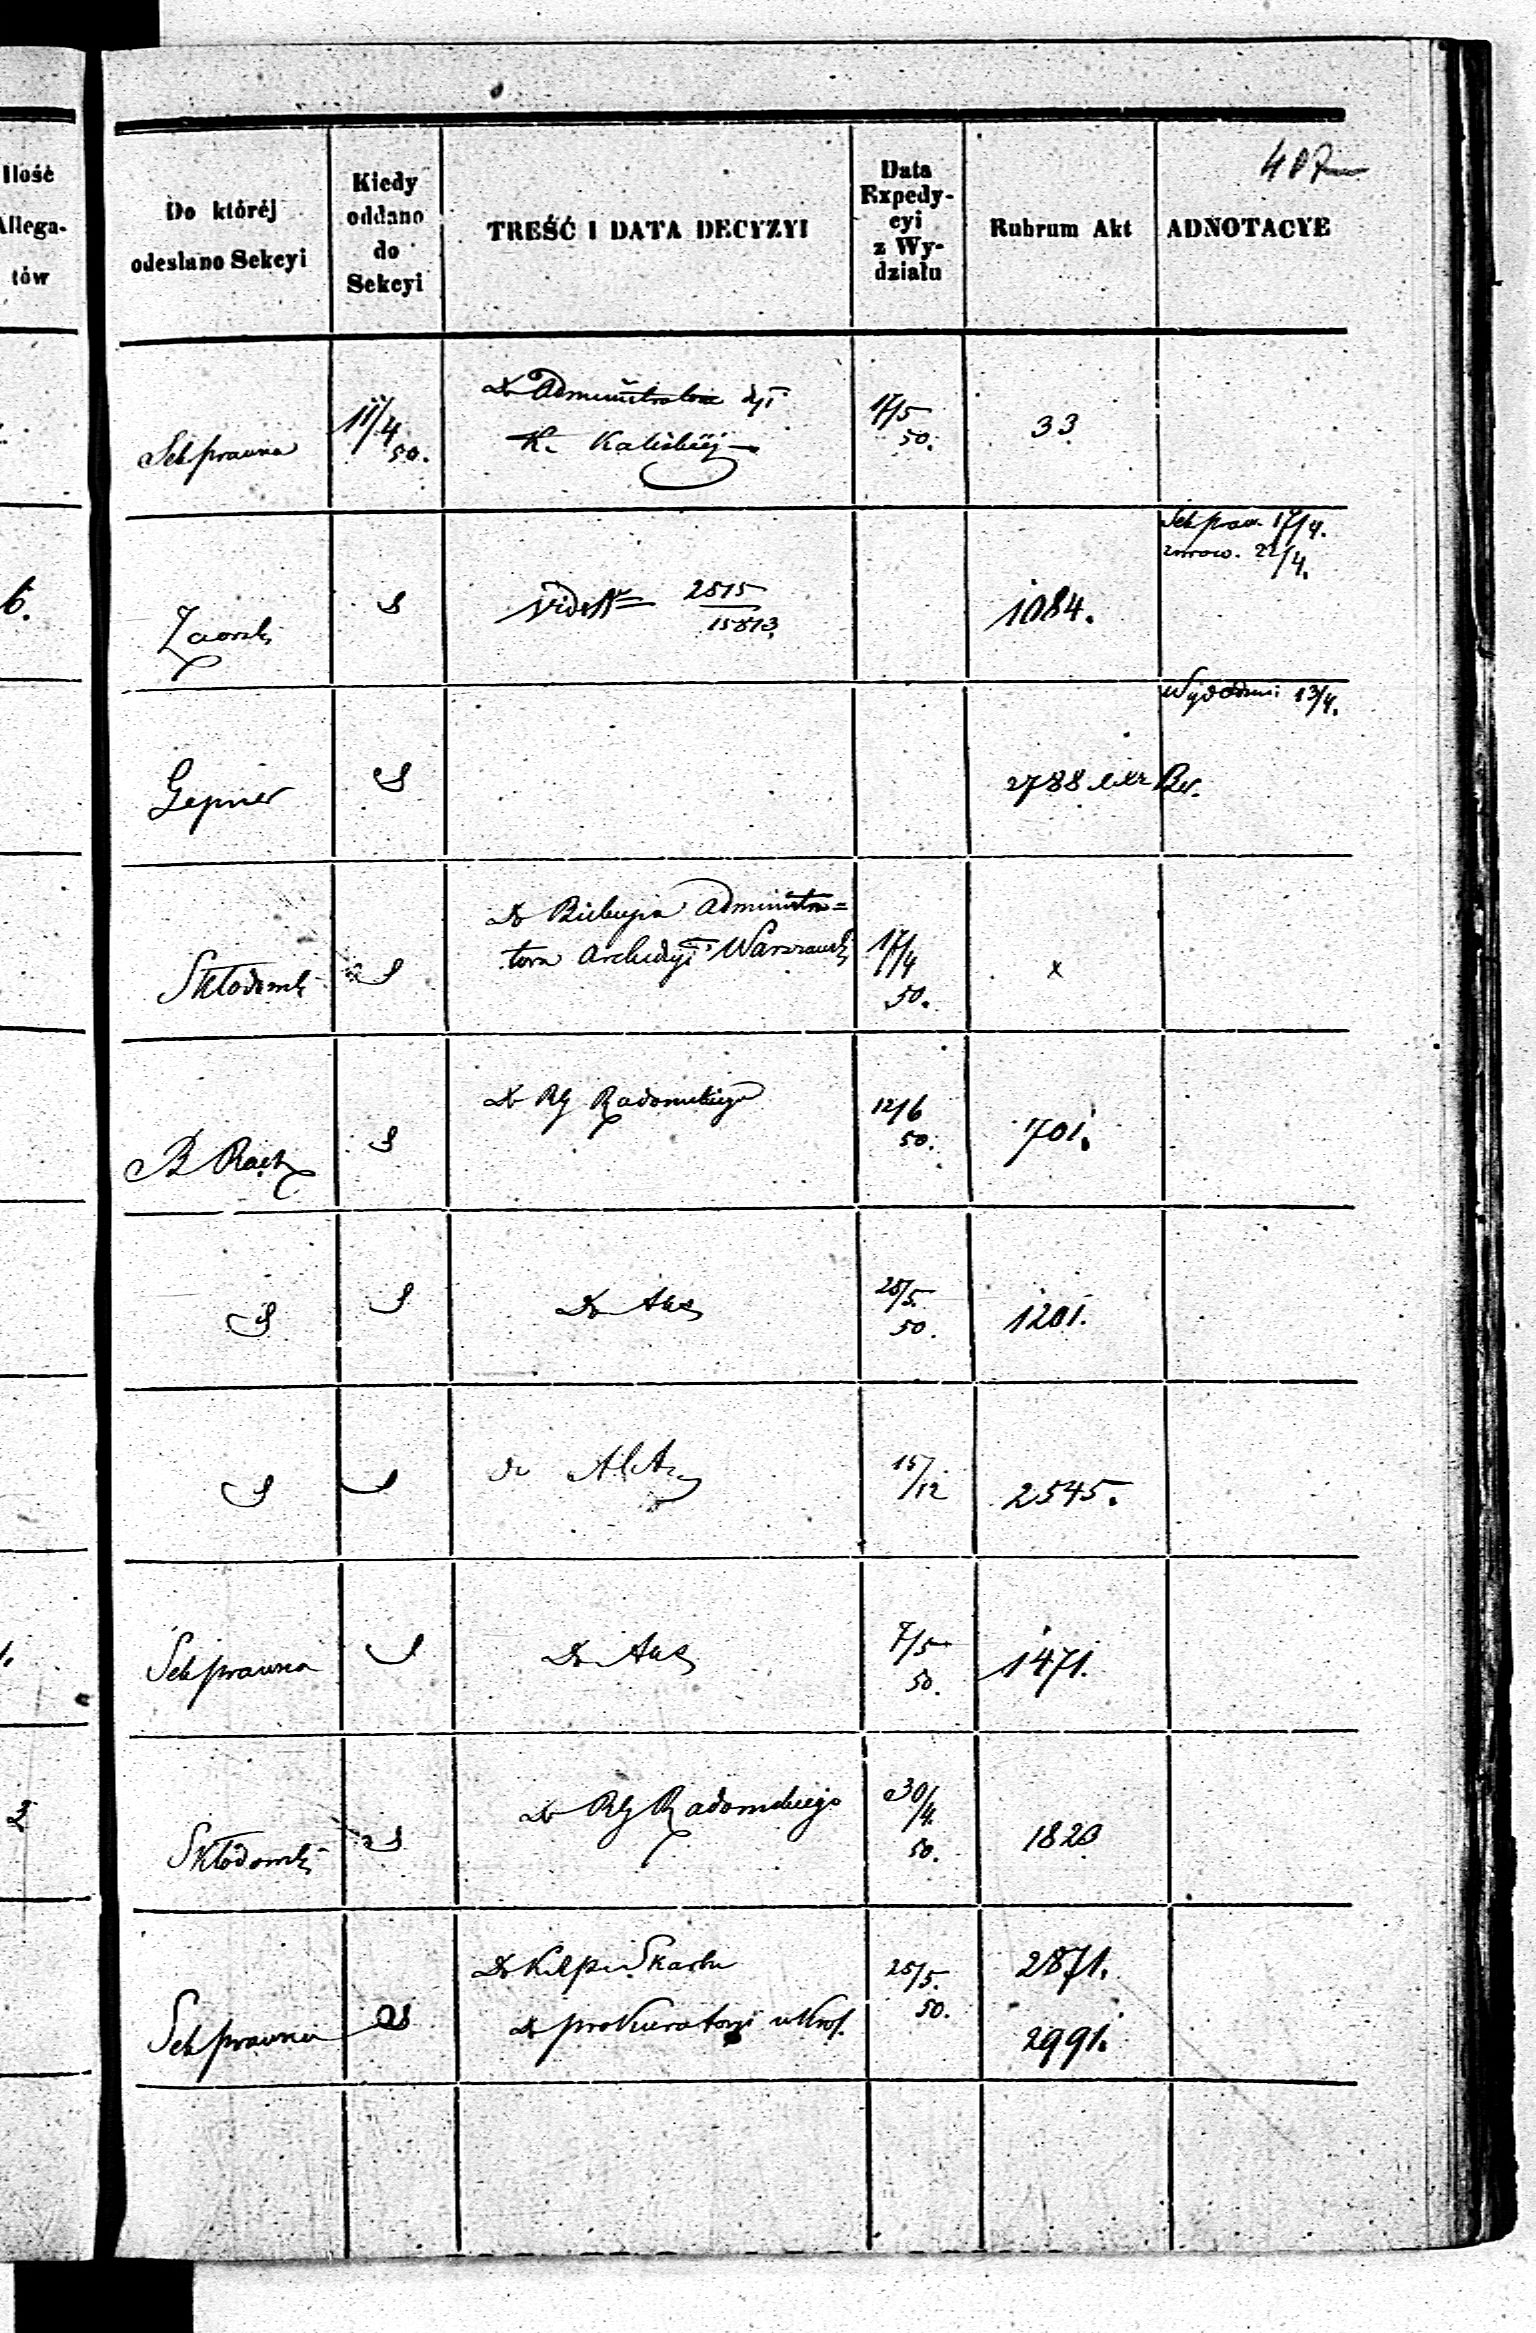 407
Ilość
Allega-
tów
Do któréj
odesłano Sekcyi
Kiedy
oddano
do
Sekcyi
TREŚĆ I DATA DECYZYI
Data
Expedy-
cyi
z Wy-
działu
Rubrum Akt
ADNOTACYE
Sek prawna
11/4
50.
Do Administratora dyi
K. Kaliskiéj
17/5
50.
33
6.
S
vide N
2515
15813.
1084.
Sek praw. 17/4.
22/4.
Gepner
S
2788
13/4.
Skłodowsk
S
Do Biskupa Administra=
tora Archidyi Warszawsk
17/4
50.
x
S
Do RG Radomskiego
12/6
50.
701.
S
S
Do Akt
25/5.
50.
1201.
S
S
do Akt
15/12
2545.
1.
Sek prawna
S
Do Akt
7/5
50.
1471.
2
Skłodowsk
S
Do RG Radomskiego
30/4.
50.
1823
Sek prawna
S
Do K R P i Skarbu
Do prokuratoryi w Król.
25/5.
50.
2871.
2991.